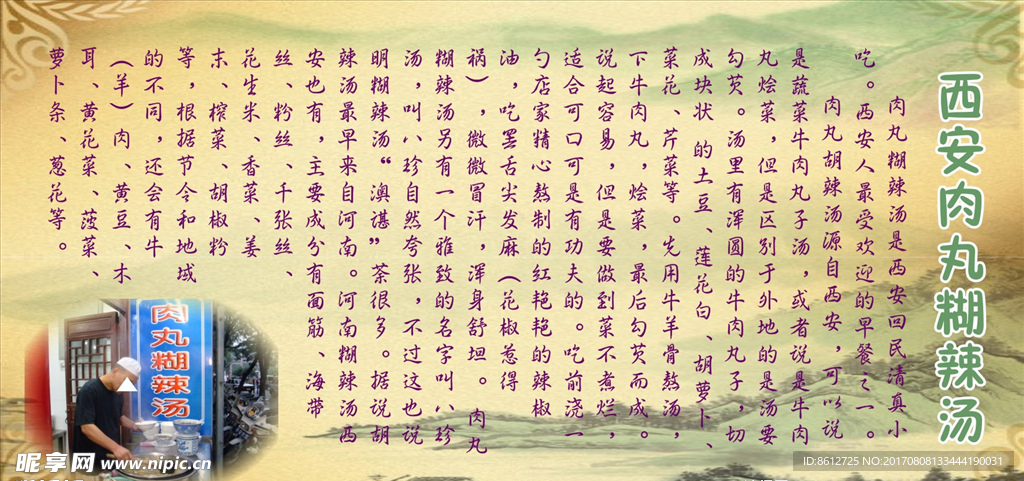 西安肉丸糊辣汤
肉丸糊辣汤是西安回民清真小
吃。西安人最受欢迎的早餐之一。
肉丸胡辣汤源自西安，可以说
是蔬菜牛肉丸子汤，或者说是牛肉
丸烩菜，但是区别于外地的是汤要
勾芡。汤里有浑圆的牛肉丸子，切
成块状 的土豆、莲花白、胡萝卜、
菜花、芹菜等。先用牛羊骨熬汤，
下牛肉丸，烩菜，最后勾芡而成。
说起容易，但是要做到菜不煮烂，
适合可口可是有功夫的。吃前浇一
勺店家精心熬制的红艳艳的辣椒
油，吃罢舌尖发麻（花椒惹得
祸），微微冒汗，浑身舒坦。 肉丸
糊辣汤另有一个雅致的名字叫八珍
汤，叫八珍自然夸张，不过这也说
明糊辣汤“澳谌”荼很多。据说胡
辣汤最早来自河南。河南糊辣汤西
安也有，主要成分有面筋、海带
丝、粉丝、千张丝、
花生米、香菜、姜
末、榨菜、胡椒粉
等，根据节令和地域
的不同，还会有牛
（羊）肉、黄豆、木
耳、黄花菜、菠菜、
萝卜条、葱花等。
肉丸糊辣汤
昵享网 www.nipic.cn
ID:8612725 NO:20170808133444190031